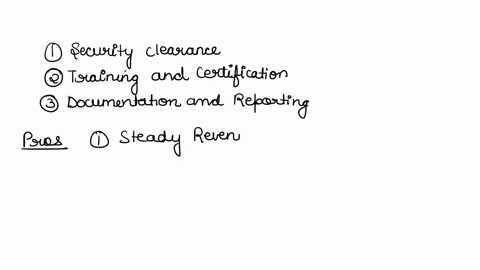 ① Security clearance
② Training and Certification
③ Documentation and Reporting
Pros ① Steady Reven